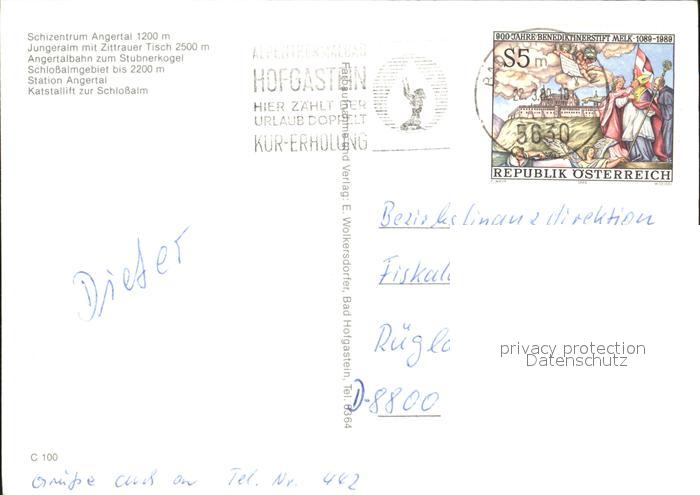 Schizentrum Angertal 1200 m
Jungeralm mit Zittrauer Tisch 2500 m
Angertalbahn zum Stubnerkogel
Schloßalmgebiet bis 2200 m
Station Angertal
Katstallift zur Schloßalm
ALPENTHERMALBAD
HOFGASTEIN
HIER ZÄHLT DER
URLAUB DOPPELT
KUR-ERHOLUNG
900 JAHRE·BENEDIKTINERSTIFT MELK·1089-1989
S5
5630
REPUBLIK ÖSTERREICH
Farbaufnahme und Verlag: E. Wolkersdorfer, Bad Hofgastein, Tel. 6364
Bezirksfinanzdirektion
Fiskal
Rügla
D-8800
privacy protection
Datenschutz
Dieter
C 100
Grüße auch an Tel. Nr. 442